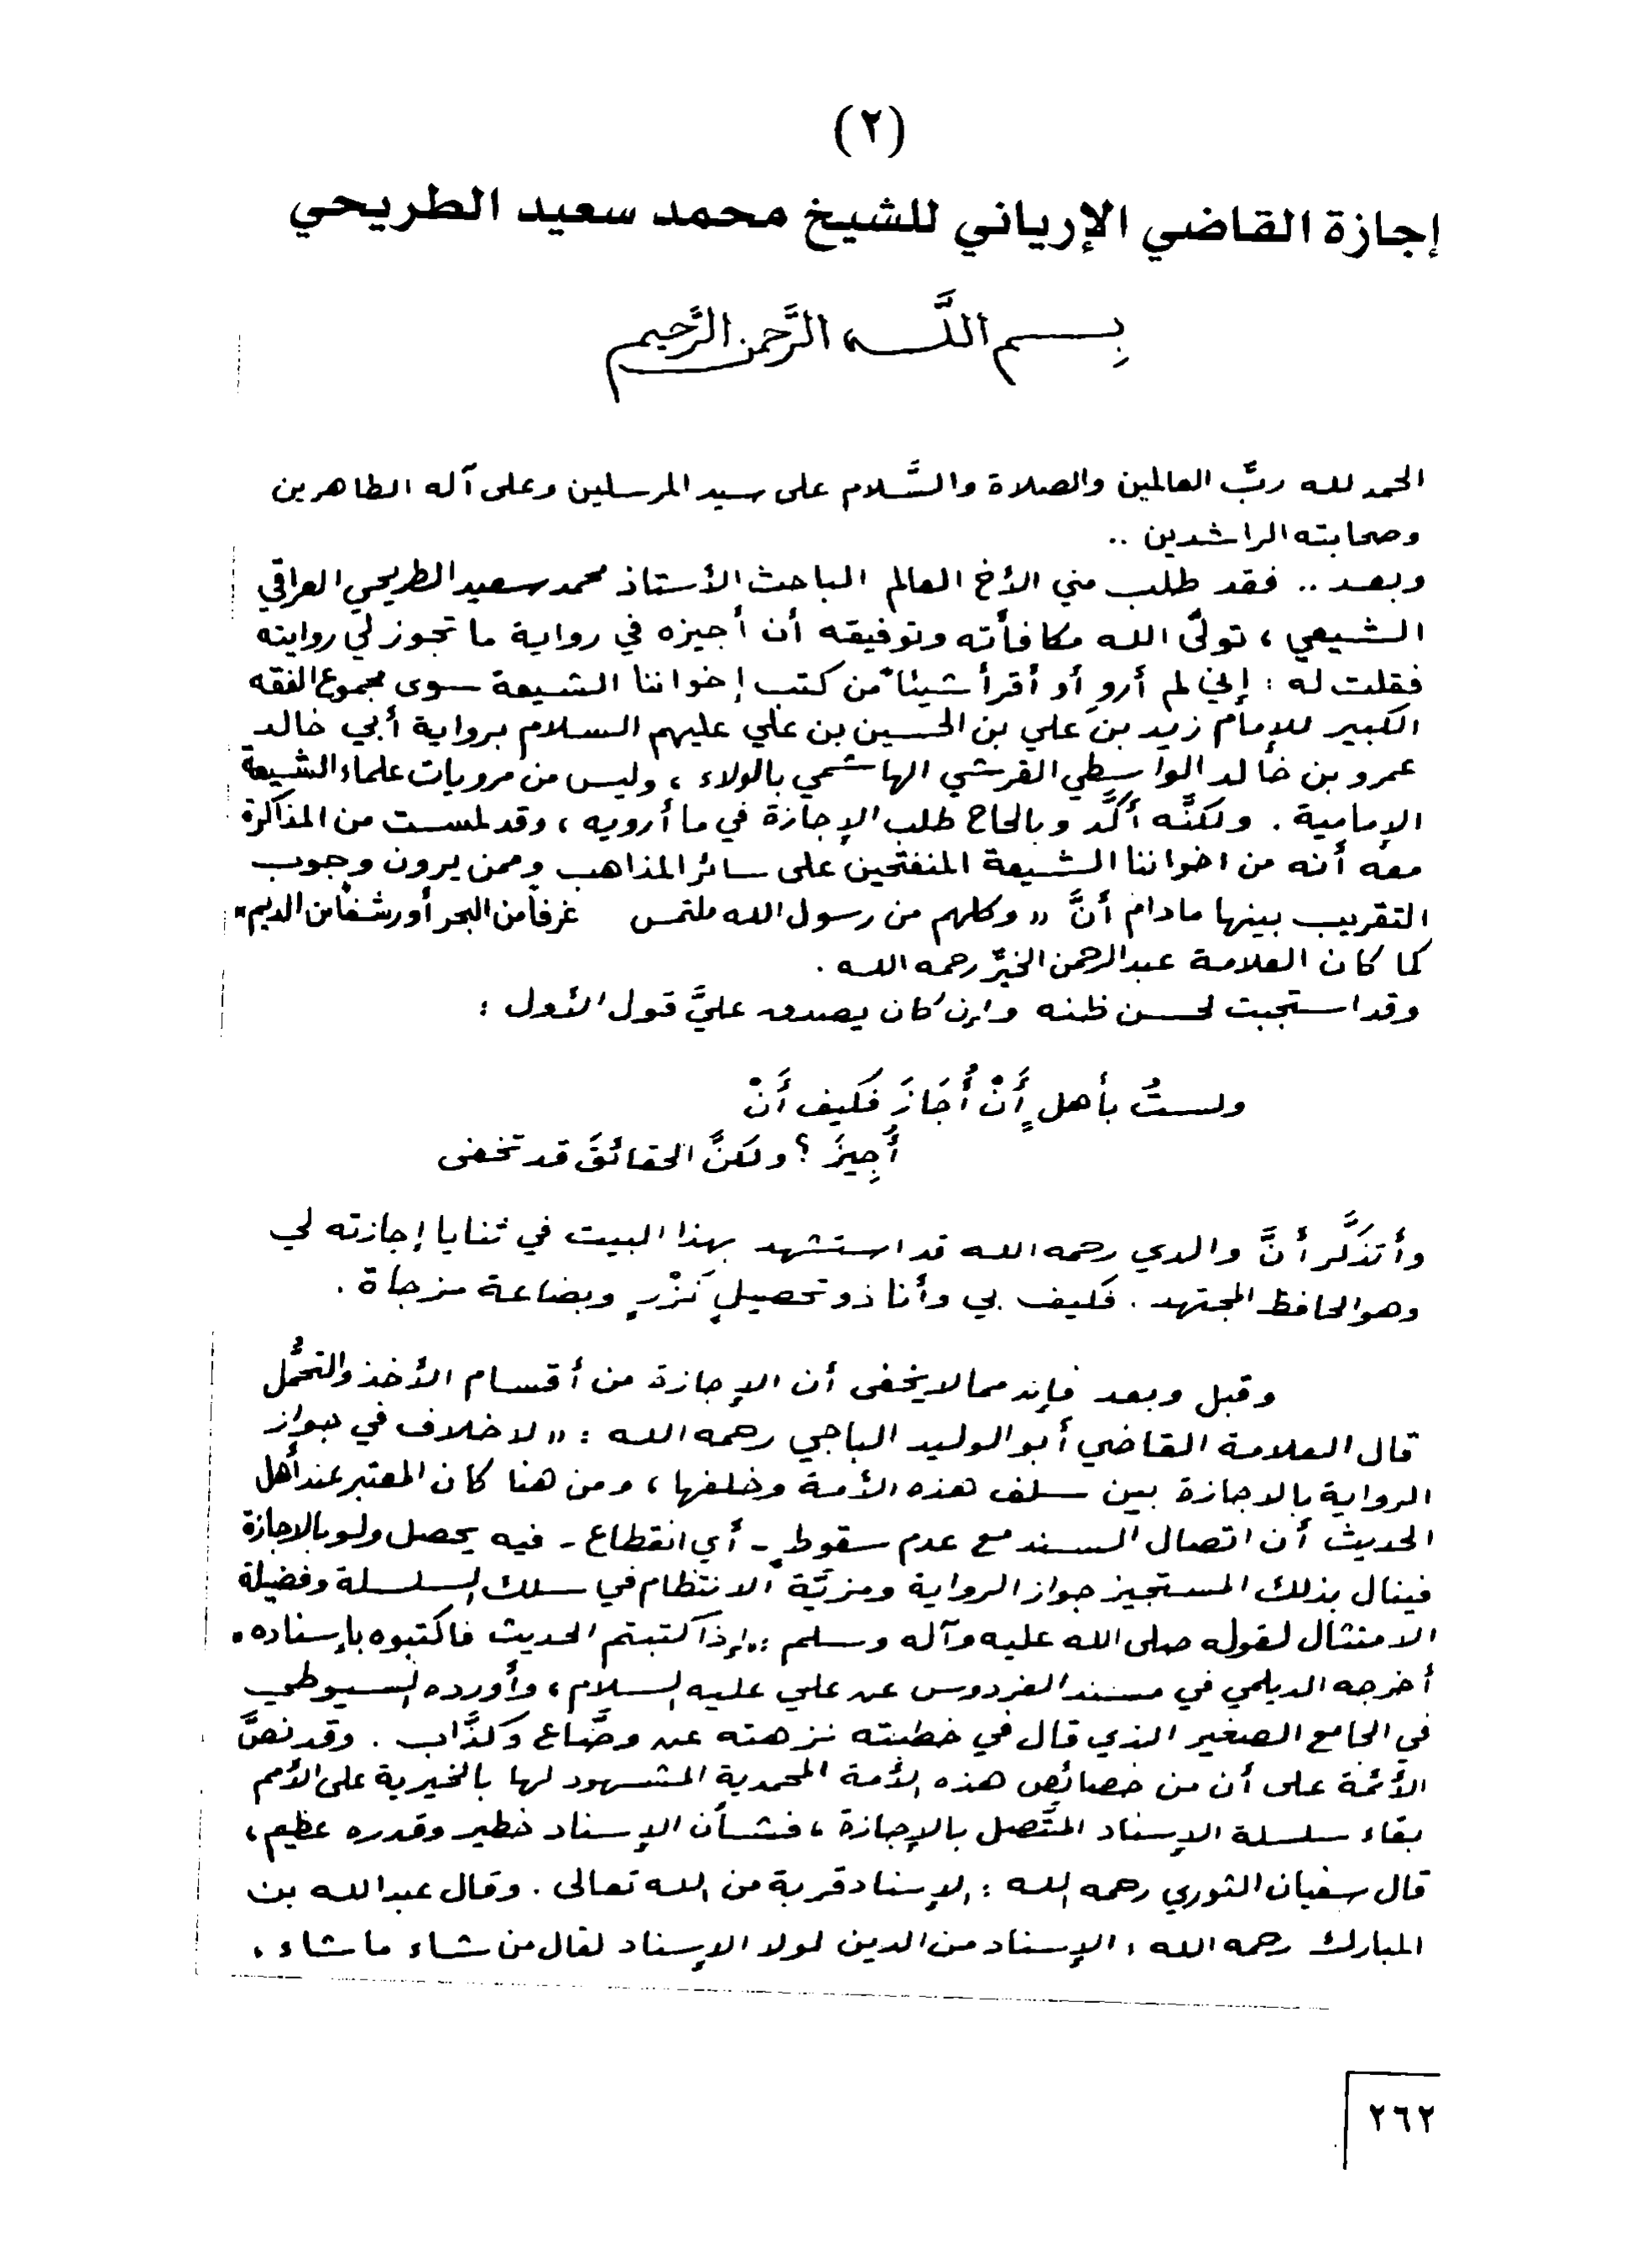 (٢)
إجازة القاضي الإرياني للشيخ محمد سعيد الطريحي
بِسم اللَّه الرَّحمن الرَّحيم
الحمد لله ربِّ العالمين والصلاة والسَّلام على سيد المرسلين وعلى آله الطاهرين
وصحابته الراشدين ..
وبعد .. فقد طلب مني الأخ العالم الباحث الأستاذ محمد سعيد الطريحي العراقي
الشيعي ، تولَّى الله مكافأته وتوفيقه أن أجيزه في رواية ما تجوز لي روايته
فقلت له : إني لم أروِ أو أقرأ شيئاً من كتب إخواننا الشيعة سوى مجموع الفقه
الكبير للإمام زيد بن علي بن الحسين بن علي عليهم السلام برواية أبي خالد
عمرو بن خالد الواسطي القرشي الهاشمي بالولاء ، وليس من مرويات علماء الشيعة
الإمامية . ولكنَّه أكَّد وبالحاح طلب الإجازة في ما أرويه ، وقد لمست من المذاكرة
معه أنه من اخواننا الشيعة المنفتحين على سائر المذاهب وممن يرون وجوب
التقريب بينها مادام أنَّ « وكلهم من رسول الله ملتمس غرفاً من البحر أو رشفاً من الديم »
كما كان العلامة عبد الرحمن الخيِّر رحمه الله .
وقد استجبت لحسن ظنه وإن كان يصدق عليَّ قول الأول :
ولستُ بأهلٍ أَنْ أُجَازَ فكيف أَنْ
أُجِيزَ ؟ ولكنَّ الحقائقَ قد تخفى
وأتذكَّر أنَّ والدي رحمه الله قد استشهد بهذا البيت في ثنايا إجازته لي
وهو الحافظ المجتهد . فكيف بي وأنا ذو تحصيلٍ نَزْرٍ وبضاعة مزجاة .
وقبل وبعد فإنه مما لا يخفى أن الإجازة من أقسام الأخذ والتحمُّل
قال العلامة القاضي أبو الوليد الباجي رحمه الله : « لا خلاف في جواز
الرواية بالاجازة بين سلف هذه الأمة وخلفها ، ومن هنا كان المعتبر عند أهل
الحديث أن اتصال السند مع عدم سقوطٍ - أي انقطاع - فيه يحصل ولو بالاجازة
فينال بذلك المستجيز جواز الرواية ومزيَّة الانتظام في سلك السلسلة وفضيلة
الامتثال لقوله صلى الله عليه وآله وسلم : « إذا كتبتم الحديث فاكتبوه بإسناده »
أخرجه الديلمي في مسند الفردوس عن علي عليه السلام ، وأورده السيوطي
في الجامع الصغير الذي قال في خطبته نزهته عن وضَّاع وكذَّاب . وقد نصَّ
الأئمة على أن من خصائص هذه الأمة المحمدية المشهود لها بالخيرية على الأمم
بقاء سلسلة الإسناد المتَّصل بالإجازة ، فشأن الإسناد خطير وقدره عظيم ،
قال سفيان الثوري رحمه الله : الإسناد قربة من الله تعالى . وقال عبد الله بن
المبارك رحمه الله : الإسناد من الدين لولا الإسناد لقال من شاء ما شاء .
٢٦٢